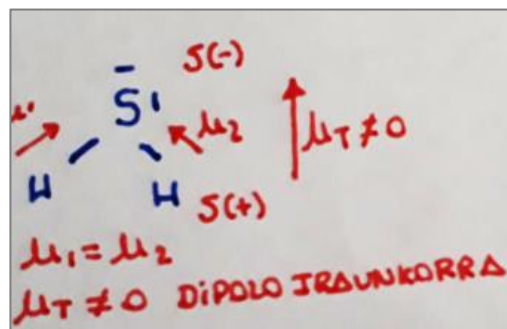 S(-)
S
μ1 μ2 μT ≠ 0
H H S(+)
μ1 = μ2
μT ≠ 0 DIPOLO IRAUNKORRA